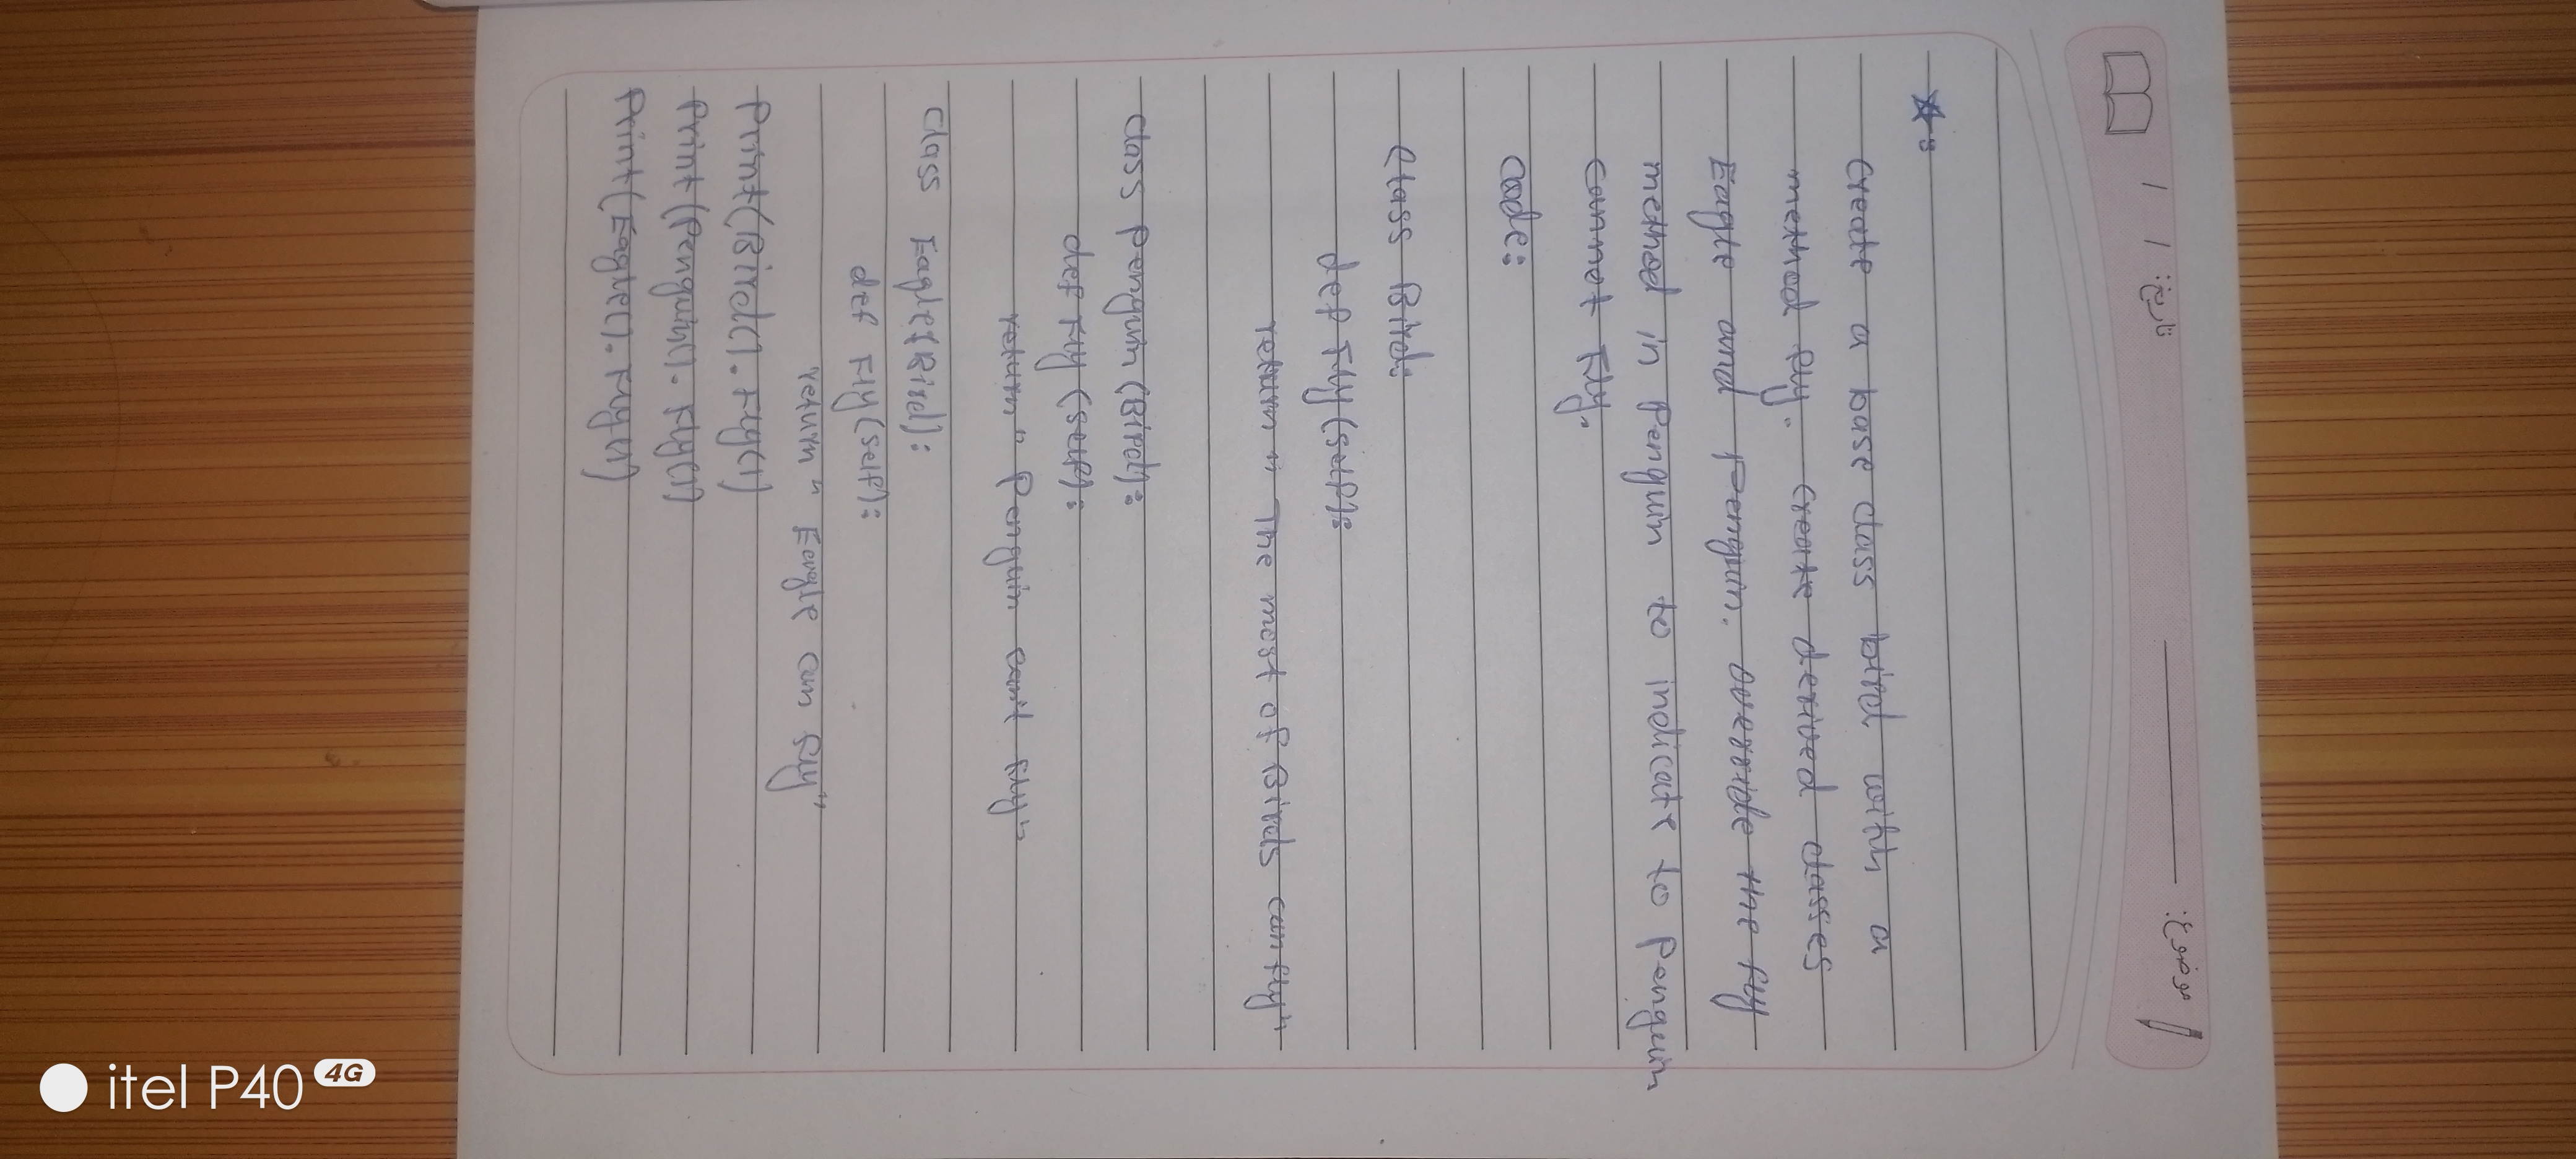 تاریخ: / /
موضوع:
Create a base class bird with a
method fly. Create derived classes
Eagle and Penguin. override the fly
method in Penguin to indicate to Pengein
cannot Fly.
Code:
Class Bird:
def Fly(self):
return " The most of Birds can fly"
class Penguin (Bird):
def Fly (self):
return " Penguin can't fly"
Class Eagle(Bird):
def Fly(self):
return " Eagle can fly"
Print(Bird().Fly())
Print(Penguin().Fly())
Print(Eagle().Fly())
itel P40 4G